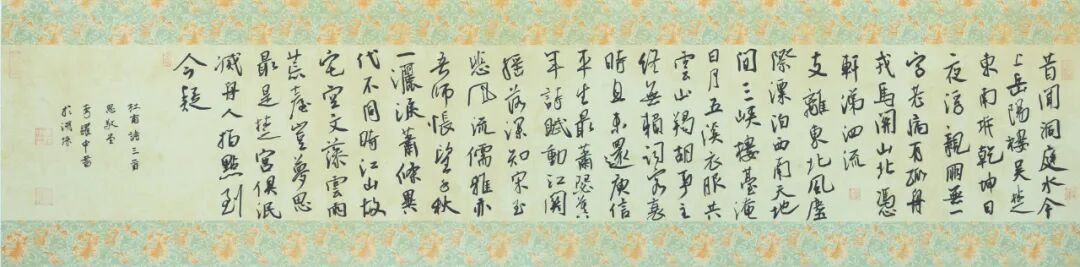 昔聞洞庭水今
上岳陽樓吳楚
東南坼乾坤日
夜浮親朋無一
字老病有孤舟
戎馬關山北憑
軒涕泗流
支離東北風塵
際漂泊西南天地
間三峽樓臺淹
日月五溪衣服共
雲山羯胡事主
終無賴詞客哀
時且未還庾信
平生最蕭瑟暮
年詩賦動江關
搖落深知宋玉
悲風流儒雅亦
吾師悵望千秋
一灑淚蕭條異
代不同時江山故
宅空文藻雲雨
荒臺豈夢思
最是楚宮俱泯
滅舟人指點到
今疑
杜甫詩三首